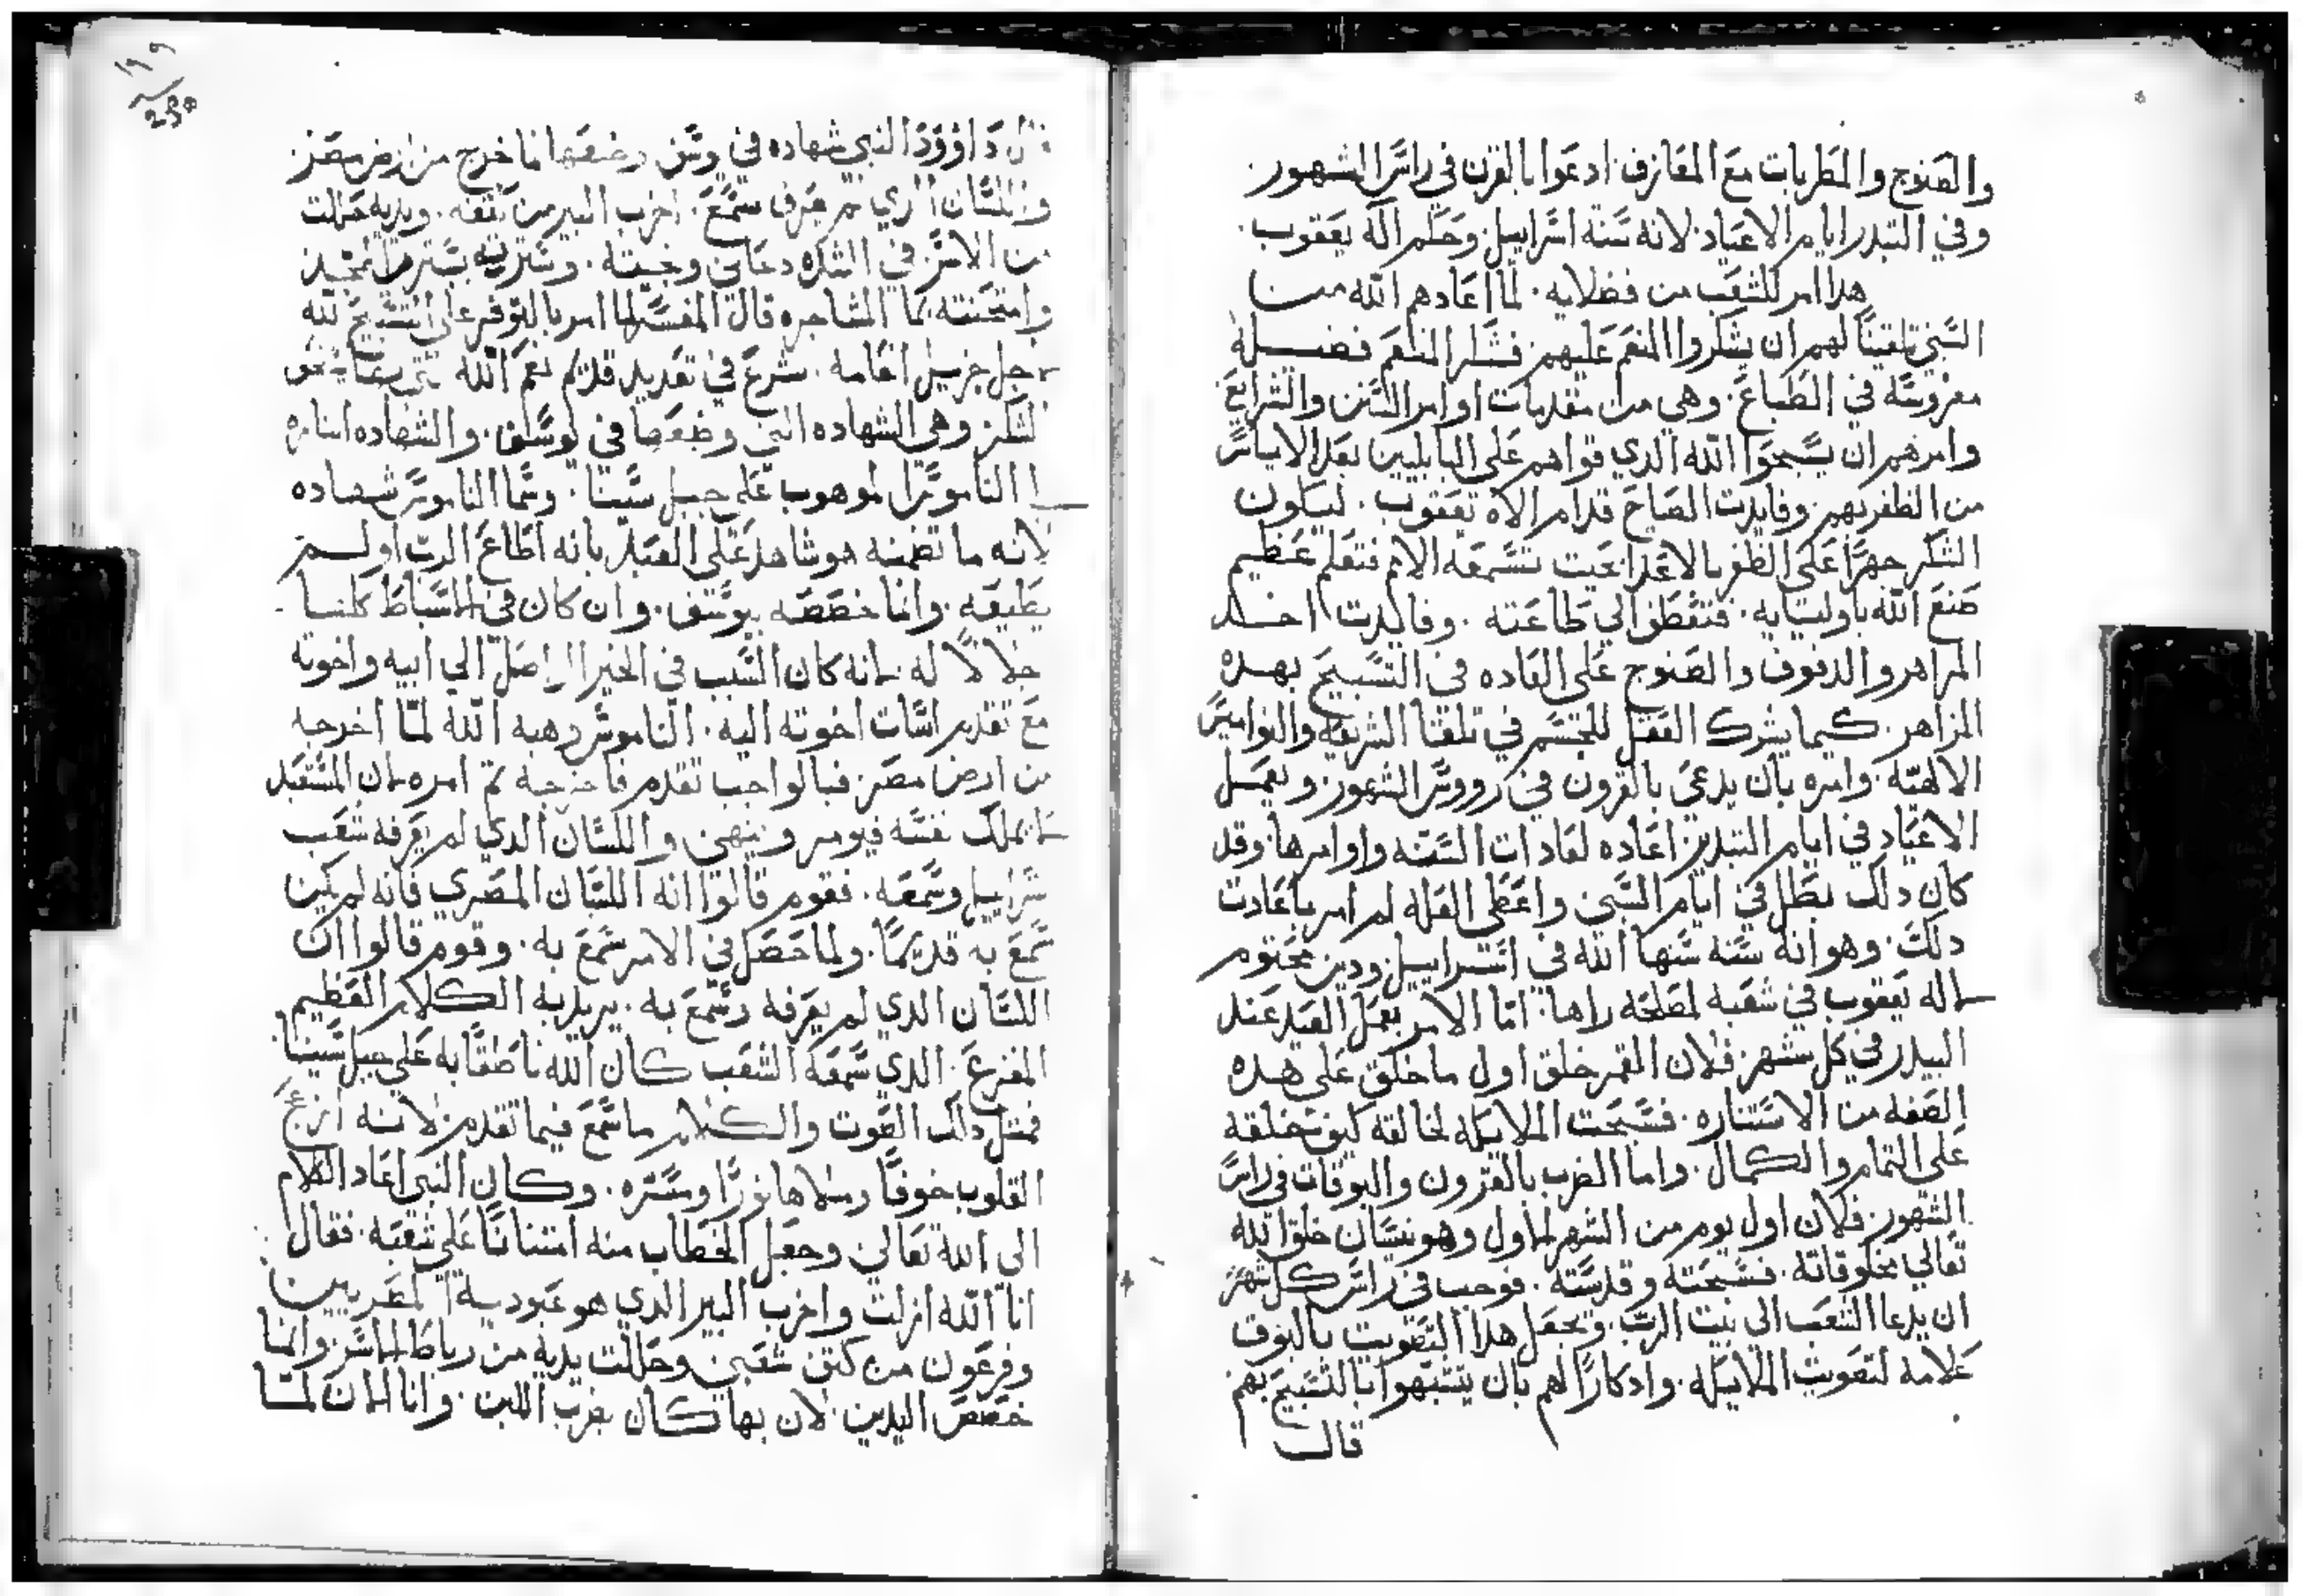 والصنوج والمطربات مع المعازف. ادعوا بالقرن في راس الشهور.
وفي البدر ايام الاعياد. لانه سنة اسراييل. وحكم اله يعقوب.
هدا امر للشعب من فضلايه. لما اعادهم الله من
السبي تلقينًا لهم ان يشكروا المنعم عليهم. فشكر المنعم فضيله
مغروسه في الطباع. وهي من مقدمات اوامر السنن والشرايع
وامرهم ان يسبحوا الله الدي قواهم على البابليين بعد الاياس
من الظفر بهم. وفايدت الصياح قدام الاه يعقوب. ليكون
الشكر جهرًا على الظفر بالاعدا بحيت تسمعه الامم فتعلم عظيم
صنع الله باوليايه. فتضطر الي طاعته. وفايدت اخد
المزاهر والدفوف والصنوج على العاده في التسبيح بهده
المزاهر. كيما يشرك العقل للجسم في تلقنا الشريعه والنواميس
الالاهيه. وامره بان يدعى بالقرون في رووس الشهور. ويعمل
الاعياد في ايام البدر اعاده لعادات السنه واوامرها. وقد
كان دلك بطل في ايام السبي واعطى العله لم امر باعادت
دلك. وهو انه سنه سنها الله في اسراييل. ودين محتوم
اله يعقوب في شعبه لمصلحه راها. اما الامر بعمل العيد عند
البيدر في كل شهر. فلان القمر خلق اول ما خلق على هده
الصفه من الاستناره. فسبحت الملايكه لخالقه كيف خلقه
على التمام والكمال. واما الضرب بالقرون والبوقات في راس
الشهور. فلان اول يوم من الشهر الاول وهو نيسان خلق الله
تعالي مخلوقاته. فسبحته وقدسته. فوجب في راس كل شهر
ان يدعا الشعب الى بيت الرب. ويجعل هدا التصويت بالبوق
علامه لتصويت الملايكه. وادكارًا لهم بان يتشبهوا بالتسبيح بهم
قال
199
230
قال داوود النبي شهاده في يوسف وضعها لما خرج من ارض مصر
واللسان الدي لم يعرف سمع. اخرب النير من كتفه. ويديه حللت
من الاسر. في الشده دعاني ونجيته. وسترته بستر مراتجيد
وامتحنته بما المشاجره قال المفسر لما امر بالتوفر على التسبيح لله
جل جزيل انعامه. شرع في تعديد قديم نعم الله
الشكر وهي الشهاده التي وضعها في يوسف. والشهاده
الناموس الموهوب على جبل سينا. وسما الناموس شهاده
لانه ما تضمنه هو شاهد على العبد بانه اطاع الرب او لم
يطيعه. وانما خصصه بيوسف. وان كان في الاسباط كلها
جلالاً له لانه كان السبب في الخير الواصل الي ابيه واخوته
مع تقدم اسات اخوته اليه. الناموس وهبه الله لما اخرجه
من ارض مصر. فبالواجب تقدم فاخرجه تم امره لان المستعبد
لا يملك نفسه فيومر وينهى واللسان الدي لم يعرفه شعب
اسراييل وسمعه. فقوم قالوا انه اللسان المصري فانه لم يكن
سمع به قديمًا. ولما حصل في الامر سمع به. وقوم قالوا ان
اللسان الدي لم يعرفه وسمع به. يريد به الكلام العظيم
المفزع. الدي سمعه الشعب كان الله ناطقًا به على جبل سينا
فمتل دلك الصوت والكلام ما سمع فيما تقدم. لانه ازعج
القلوب خوفًا وملاها نورًا ومسره. وكان النبي اعاد الكلام
الى الله تعالى وجعل الخطاب منه امتنانًا على شعبه. فقال
انا الله ازلت واخرب النير الدي هو عبودية المصريين
وفرعون من كتف شعبي وحللت يديه من رباط الاسر. وانما
خصص اليدين. لان بها كان يضرب اللبن. وانا الان لما